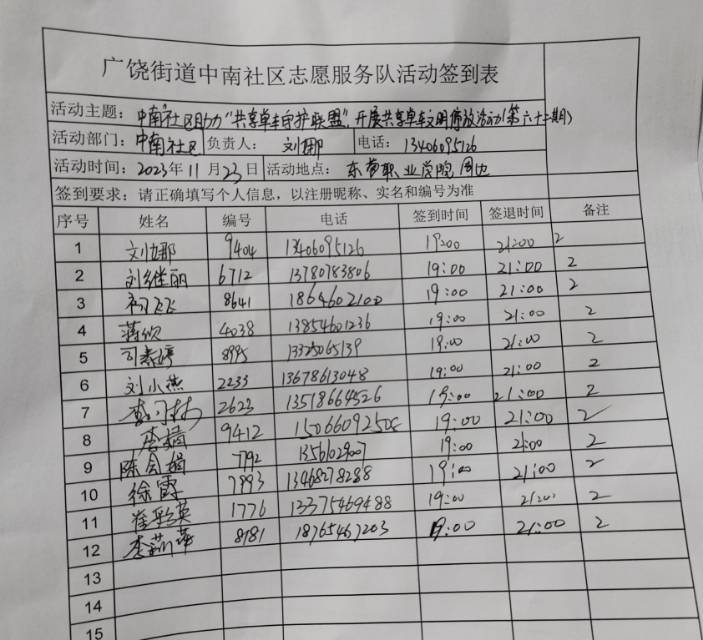 广饶街道中南社区志愿服务队活动签到表
活动主题: 中南社区助力"共享单车守护联盟",开展共享单车文明停放活动(第六十二期)
活动部门: 中南社区 负责人: 刘娜 电话: 13406095126
活动时间: 2023年11月23日 活动地点: 东营职业学院周边
签到要求: 请正确填写个人信息, 以注册昵称、实名和编号为准
序号 姓名 编号 电话 签到时间 签退时间 备注
1 刘娜 9404 13406095126 19:00 21:00 2
2 刘继丽 6712 13780783806 19:00 21:00 2
3 飞飞 8641 18654602100 19:00 21:00 2
4 蒋欣 4038 13854601236 19:00 21:00 2
5 婷 8995 13325065139 19:00 21:00 2
6 刘小燕 2233 13678613048 19:00 21:00 2
7 2623 13518664526 19:00 21:00 2
8 唐娟 9412 15066092508 19:00 21:00 2
9 陈娟 792 19:00 21:00 2
10 徐霞 7993 13468278288 19:00 21:00 2
11 崔彩英 1776 13375469488 19:00 21:00 2
12 李燕萍 8181 18765467203 19:00 21:00 2
13
14
15